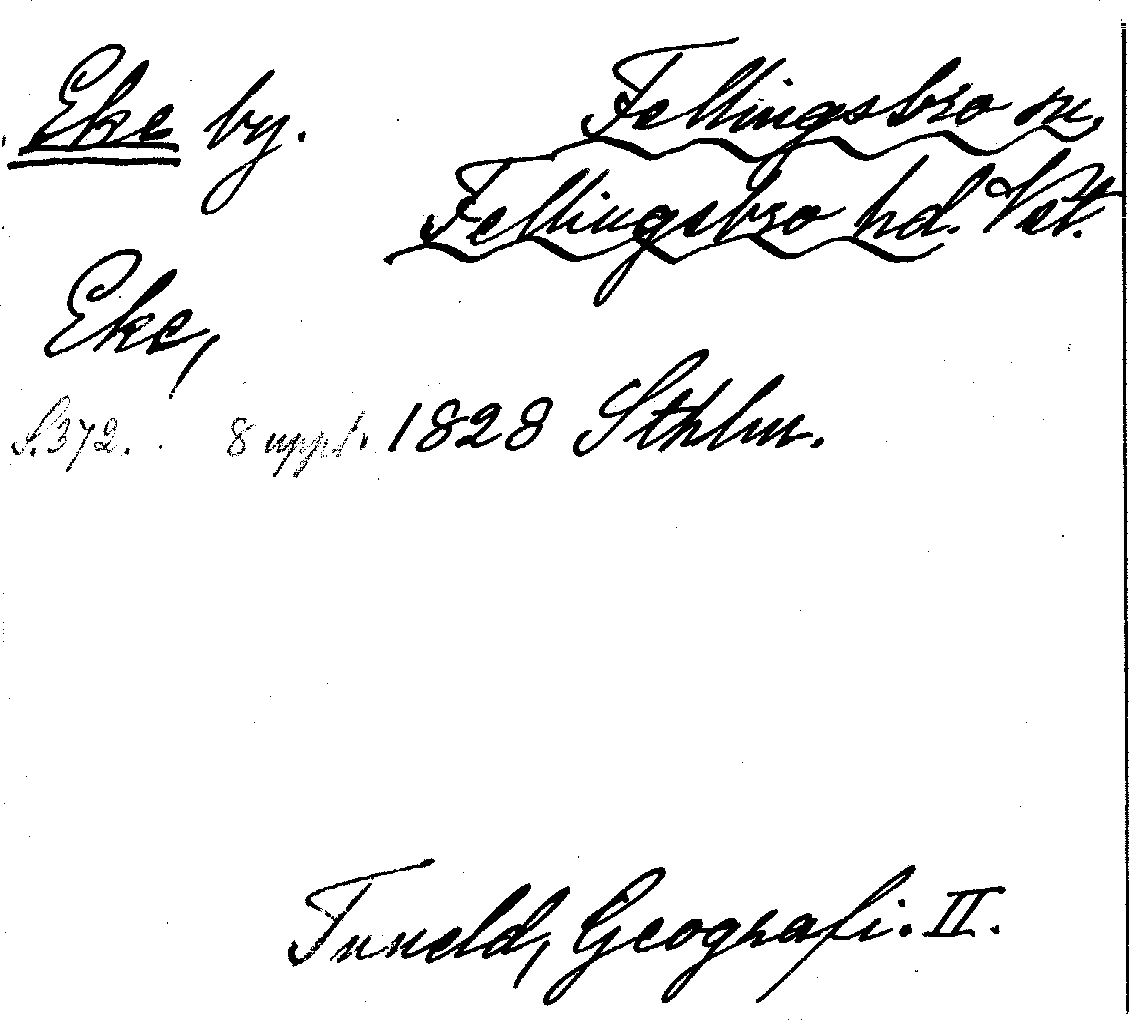 Eke by. Fellingsbro sn,
Fellingsbro hd. Vst.
Eke,
S. 372. 8 uppl. 1828 Sthlm.
Tuneld, Geografi. II.